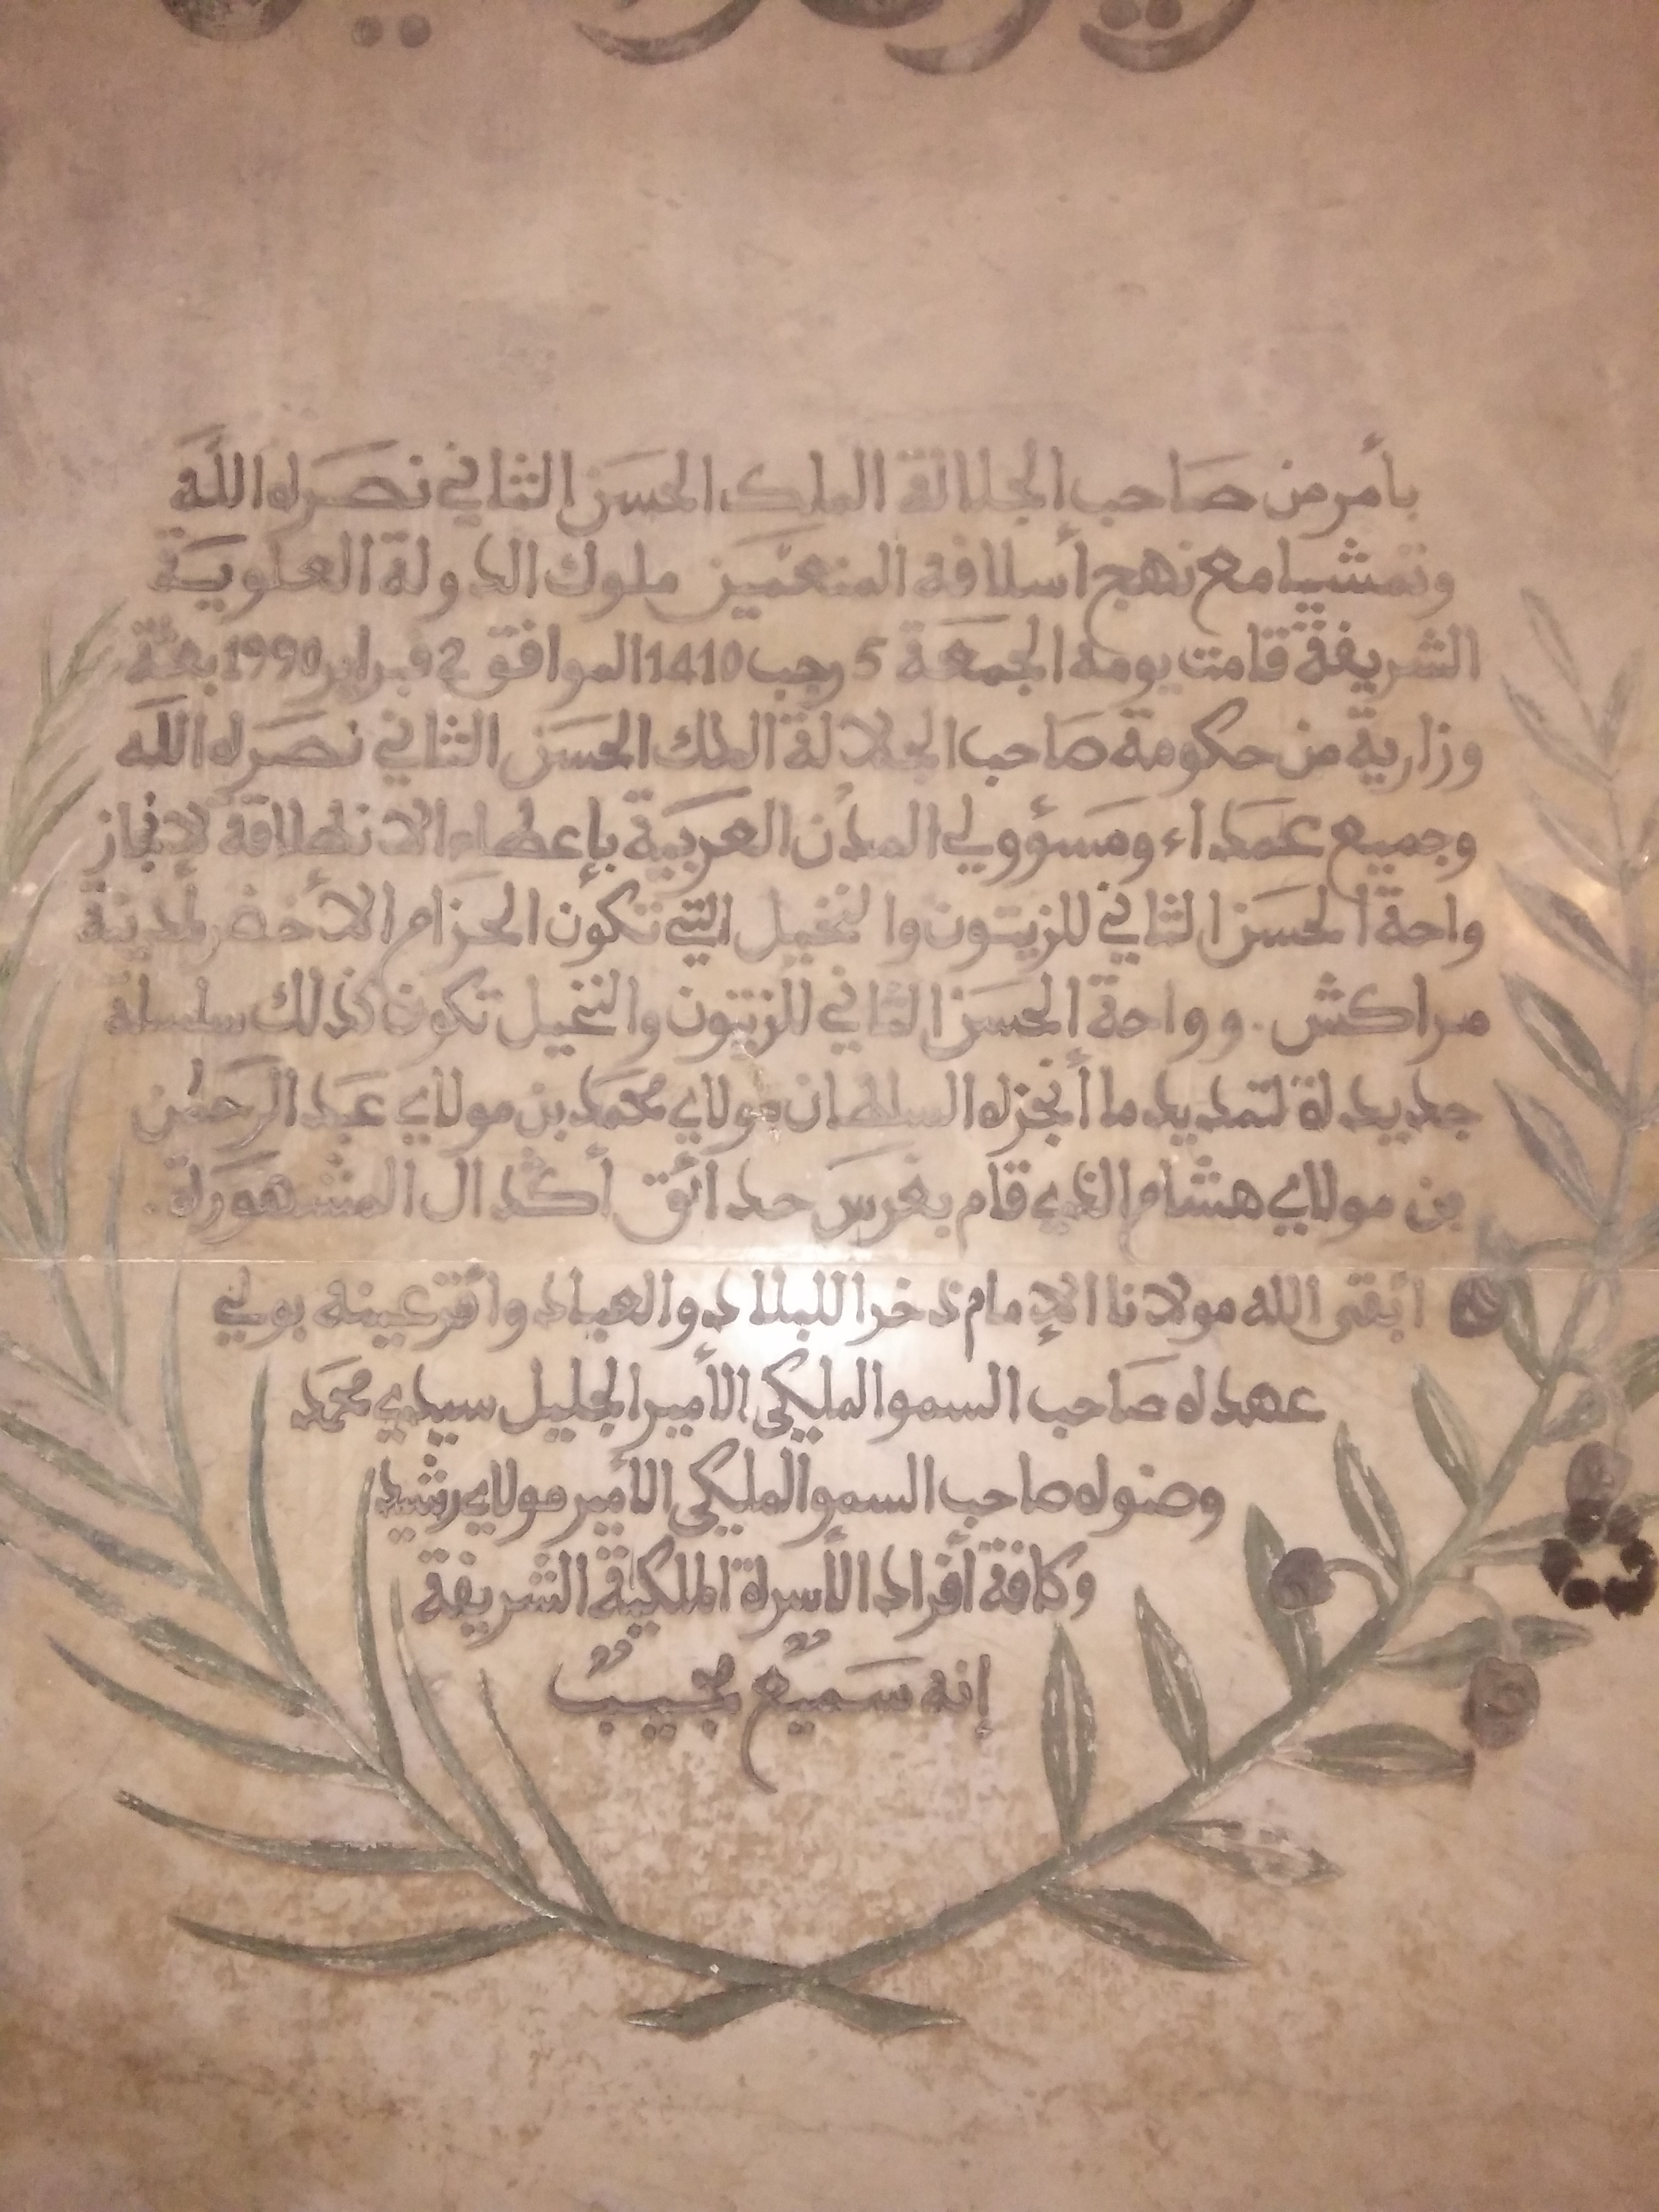 بأمر من صاحب الجلالة الملك الحسن الثاني نصره الله
وتمشيا مع نهج أسلافه المنعمين ملوك الدولة العلوية
الشريفة قامت يومه الجمعة 5 رجب 1410 الموافق 2 فبراير 1990 بعثة
وزارية من حكومة صاحب الجلالة الملك الحسن الثاني نصره الله
وجميع عمداء ومسؤولي المدن العربية بإعطاء الانطلاقة لإنجاز
واحة الحسن الثاني للزيتون والنخيل التي تكون الحزام الأخضر لمدينة
مراكش . وواحة الحسن الثاني للزيتون والنخيل تكون كذلك سلسلة
جديدة لتمديد ما أنجزه السلطان مولاي محمد بن مولاي عبد الرحمٰن
بن مولاي هشام الذي قام بغرس حدائق أكدال المشهورة .
أبقى الله مولانا الإمام ذخرا للبلاد والعباد وأقر عينه بولي
عهده صاحب السمو الملكي الأمير الجليل سيدي محمد
وصنوه صاحب السمو الملكي الأمير مولاي رشيد
وكافة أفراد الأسرة الملكية الشريفة
إنه سَميعٌ مجيبٌ